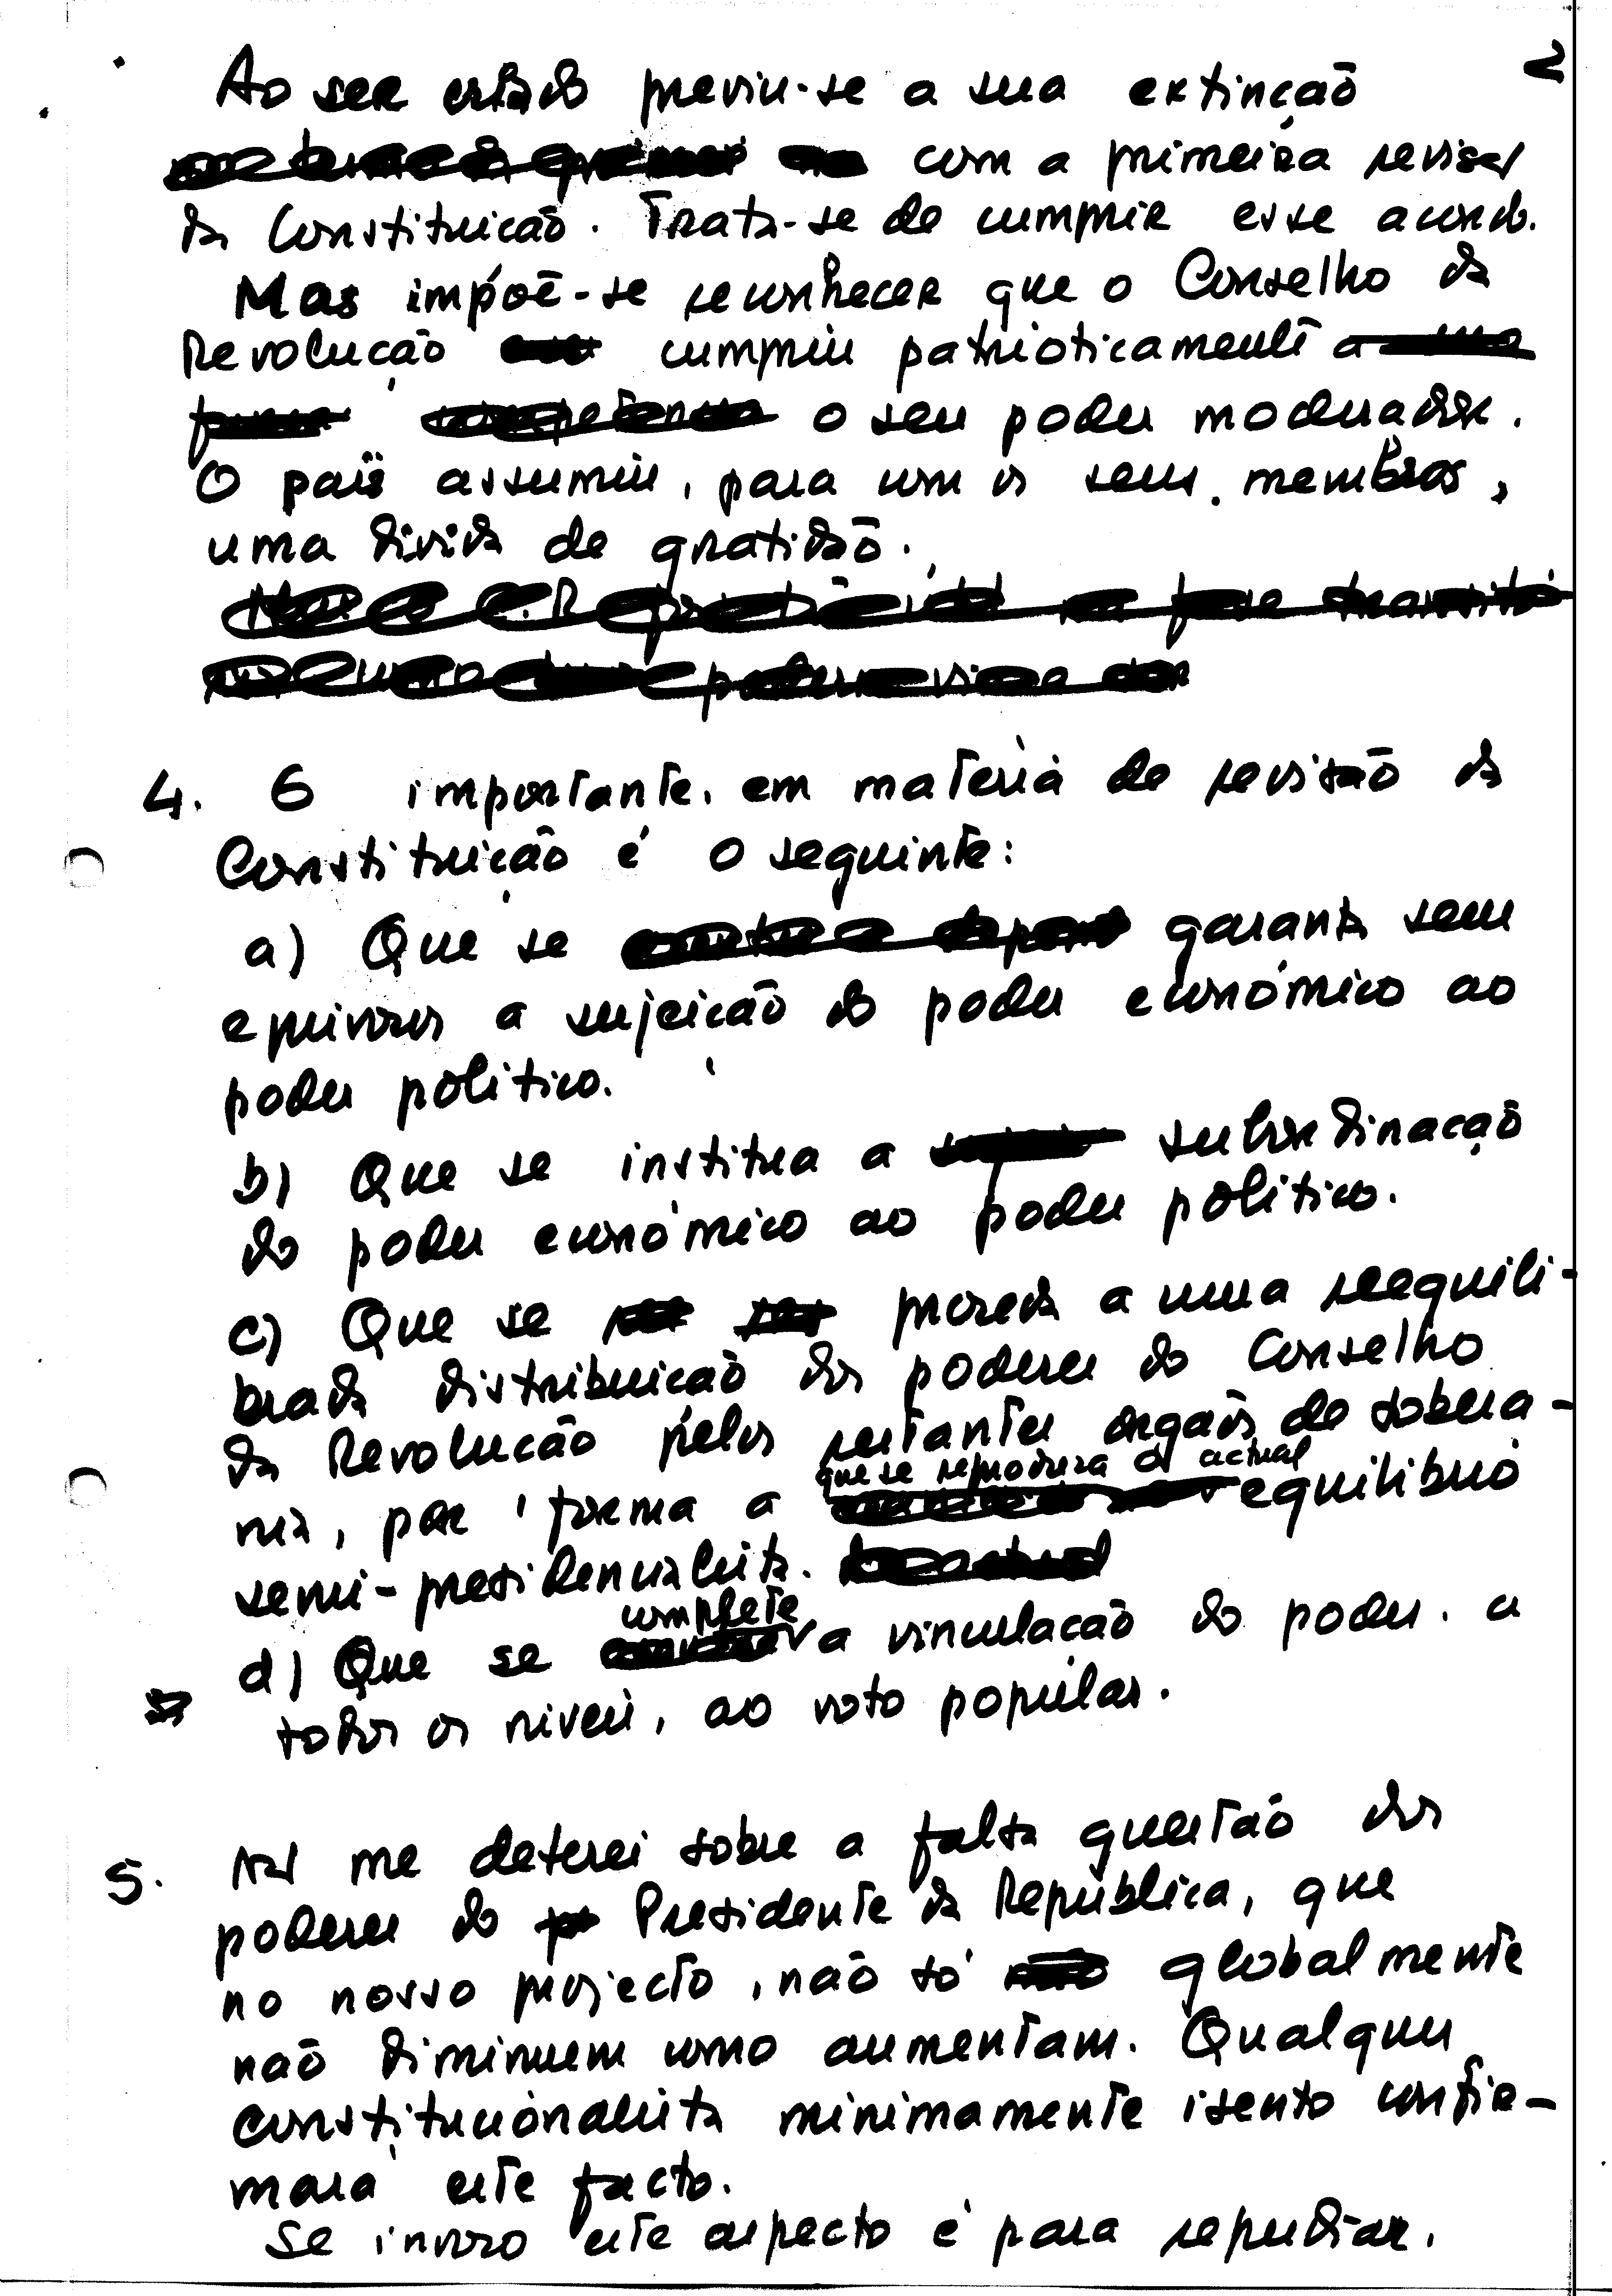 2
Ao ser criado previu-se a sua extinção
com a primeira revisão
da Constituição. Trata-se de cumprir esse acordo.
Mas impõe-se reconhecer que o Conselho da
Revolução cumpriu patrioticamente a
o seu poder moderador.
O país assumiu, para com os seus membros,
uma dívida de gratidão.
4. O importante, em matéria de revisão da
Constituição é o seguinte:
a) Que se garanta sem
equívocos a sujeição do poder económico ao
poder político.
b) Que se institua a subordinação
do poder económico ao poder político.
c) Que se proceda a uma reequili-
brada distribuição dos poderes do Conselho
da Revolução pelos restantes órgãos de sobera-
nia, por forma a que se reproduza o actual equilíbrio
semi-presidencialista.
d) Que se complete a vinculação do poder, a
todos os níveis, ao voto popular.
5. Não me deterei sobre a falsa questão dos
poderes do Presidente da República, que
no nosso projecto, não só globalmente
não diminuem como aumentam. Qualquer
constitucionalista minimamente isento confir-
mará este facto.
Se invoco este aspecto é para repudiar.